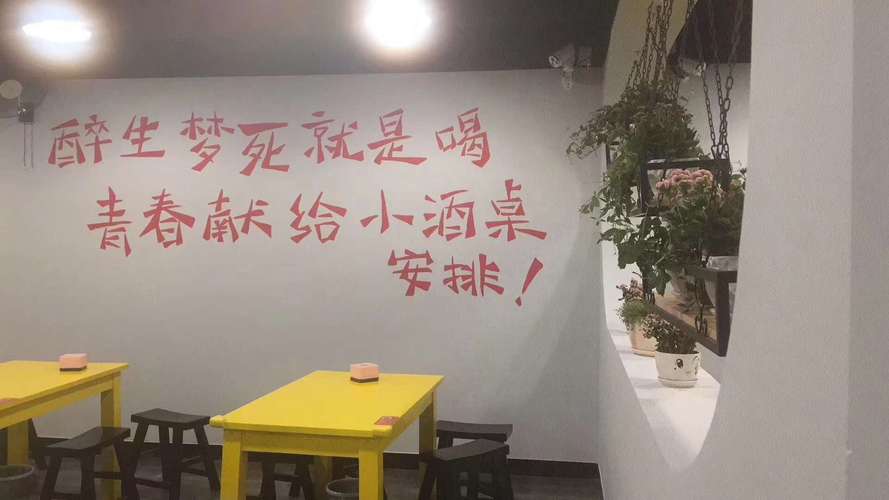 醉生梦死就是喝
青春献给小酒桌
安排！